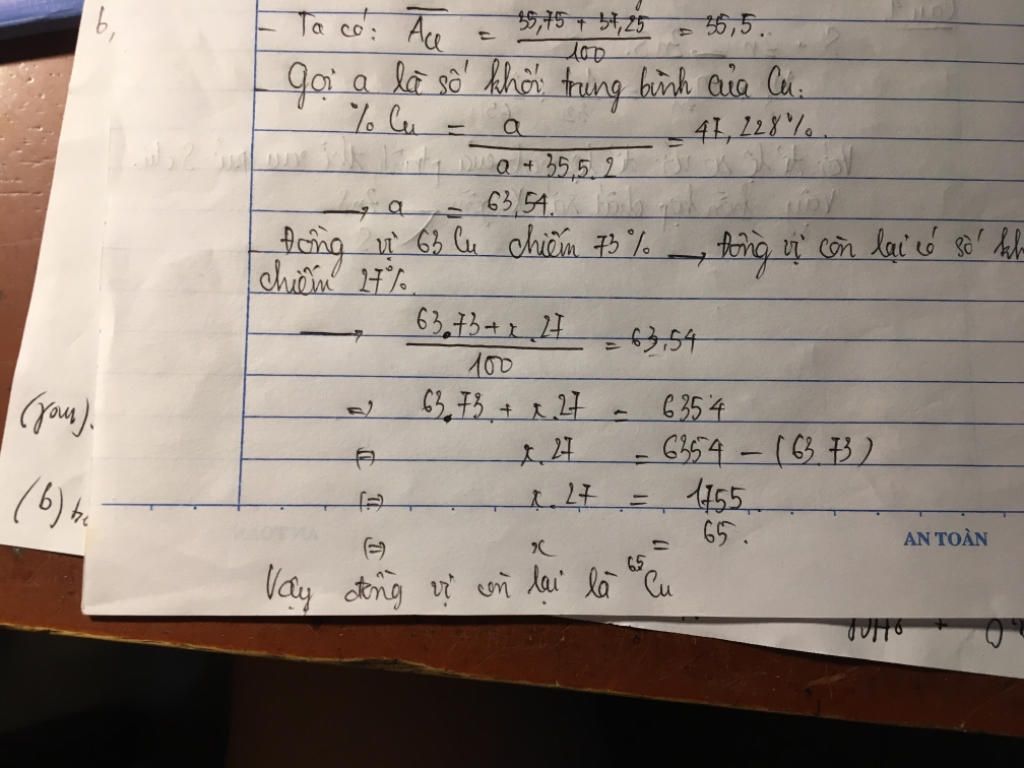 b,
- Ta có: A̅Cl = (35,75 + 37,25)/100 = 35,5.
- Gọi a là số khối trung bình của Cu.
% Cu = a/(a + 35,5.2) = 47,228%.
→ a = 63,54.
- Đồng vị 63 Cu chiếm 73% → đồng vị còn lại có số kh
chiếm 27%.
→ (63.73 + x.27)/100 = 63,54
=> 63.73 + x.27 = 6354
(=) x.27 = 6354 - (63.73)
(=> x.27 = 1755
(=) x = 65.
AN TOÀN
Vậy đồng vị còn lại là ⁶⁵Cu
(b)